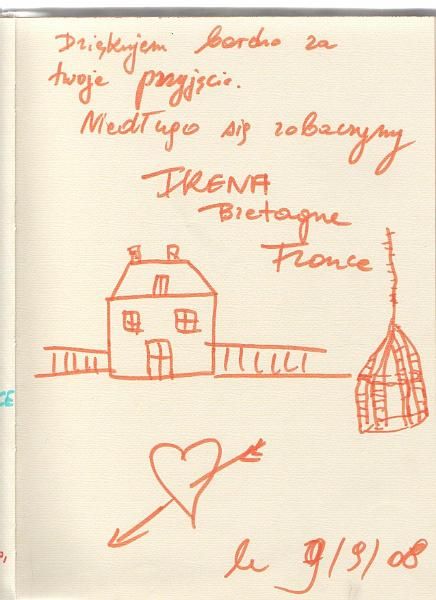 Dziękujem bardzo za
twoje przyjęcie.
Niedługo się zobaczymy
IRENA
Bretagne
France
le 9/9/08